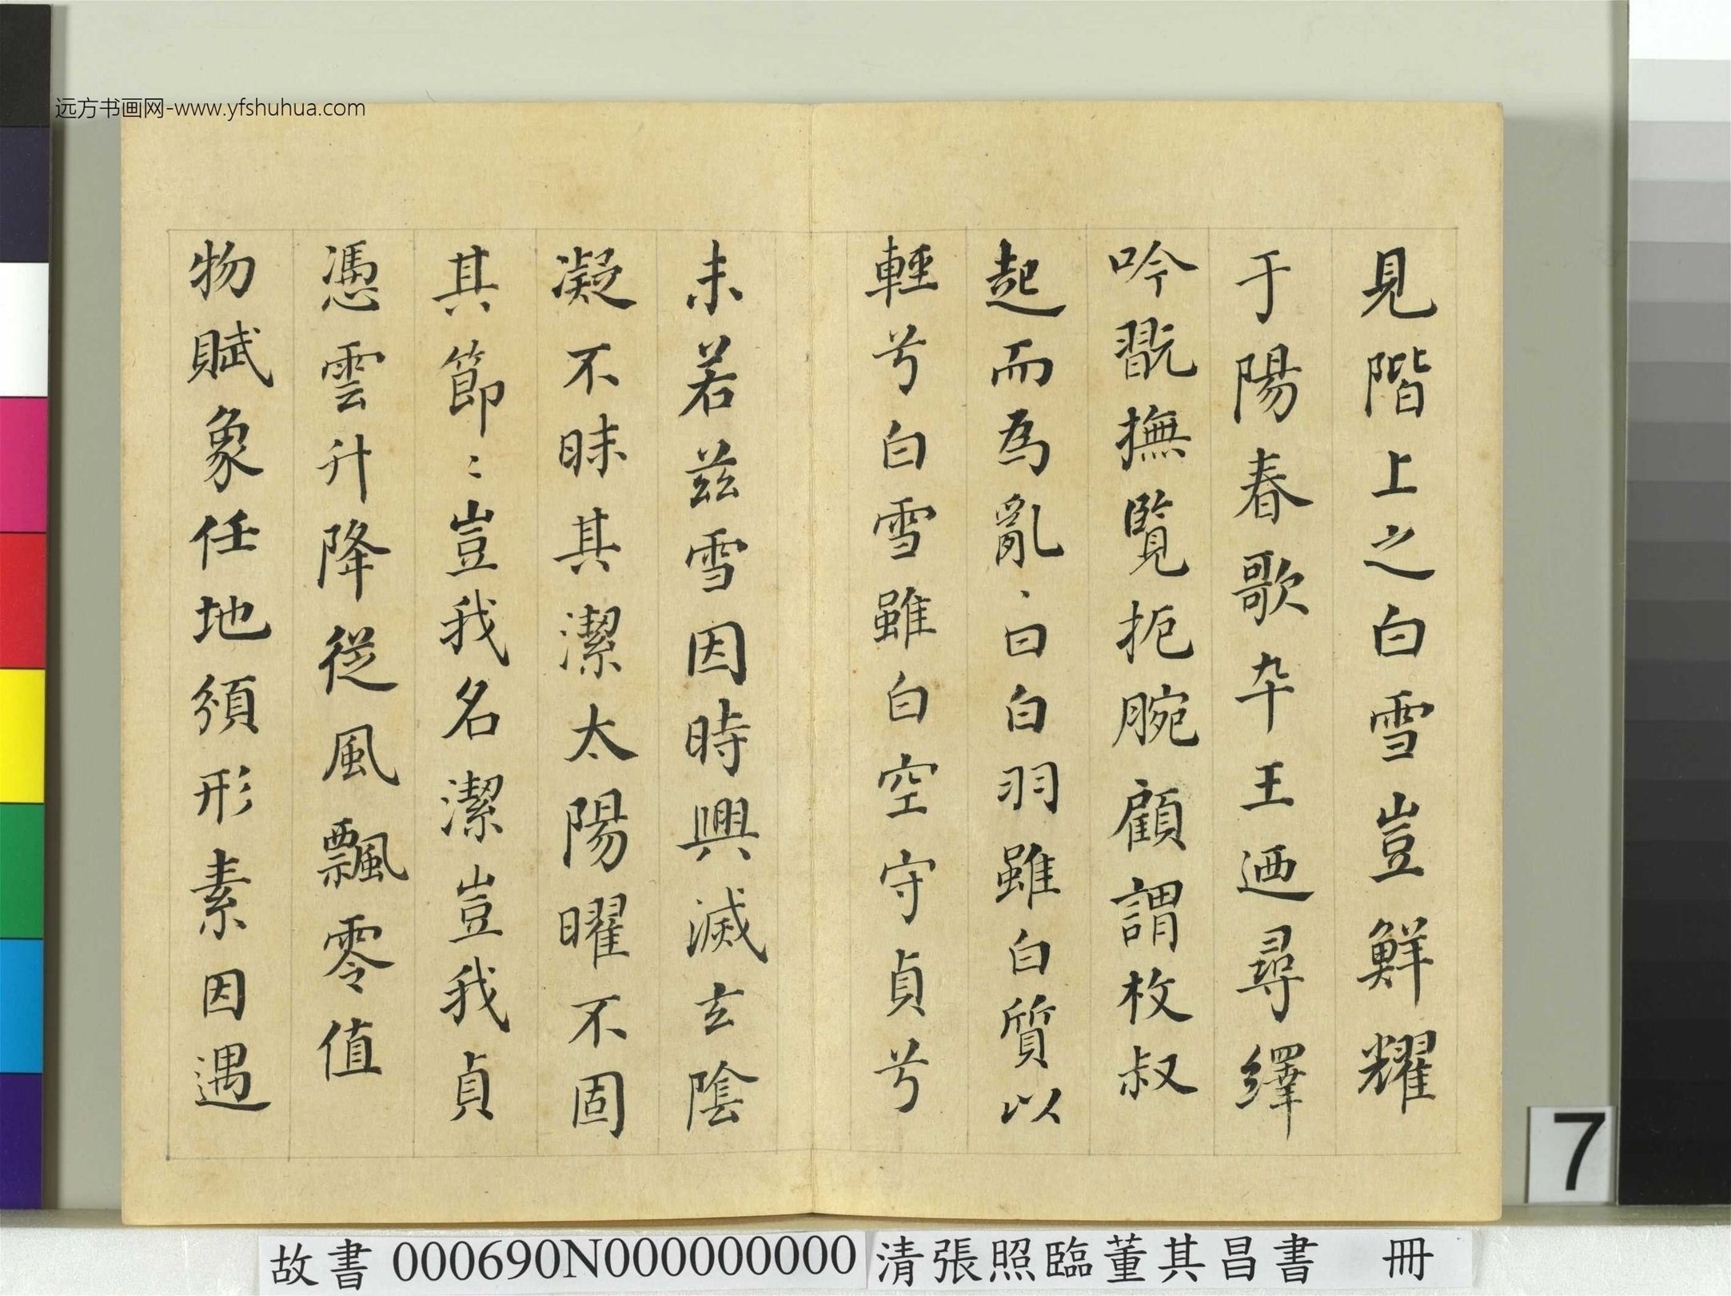 远方书画网-www.yfshuhua.com
見階上之白雪豈鮮耀
于陽春歌卒王迺尋繹
吟翫撫覽扼腕顧謂枚叔
起而為亂亂曰白羽雖白質以
輕兮白雪雖白空守貞兮
未若茲雪因時興滅玄陰
凝不昧其潔太陽曜不固
其節節豈我名潔豈我貞
憑雲升降從風飄零值
物賦象任地須形素因遇
7
故書 000690N000000000 清張照臨董其昌書 冊